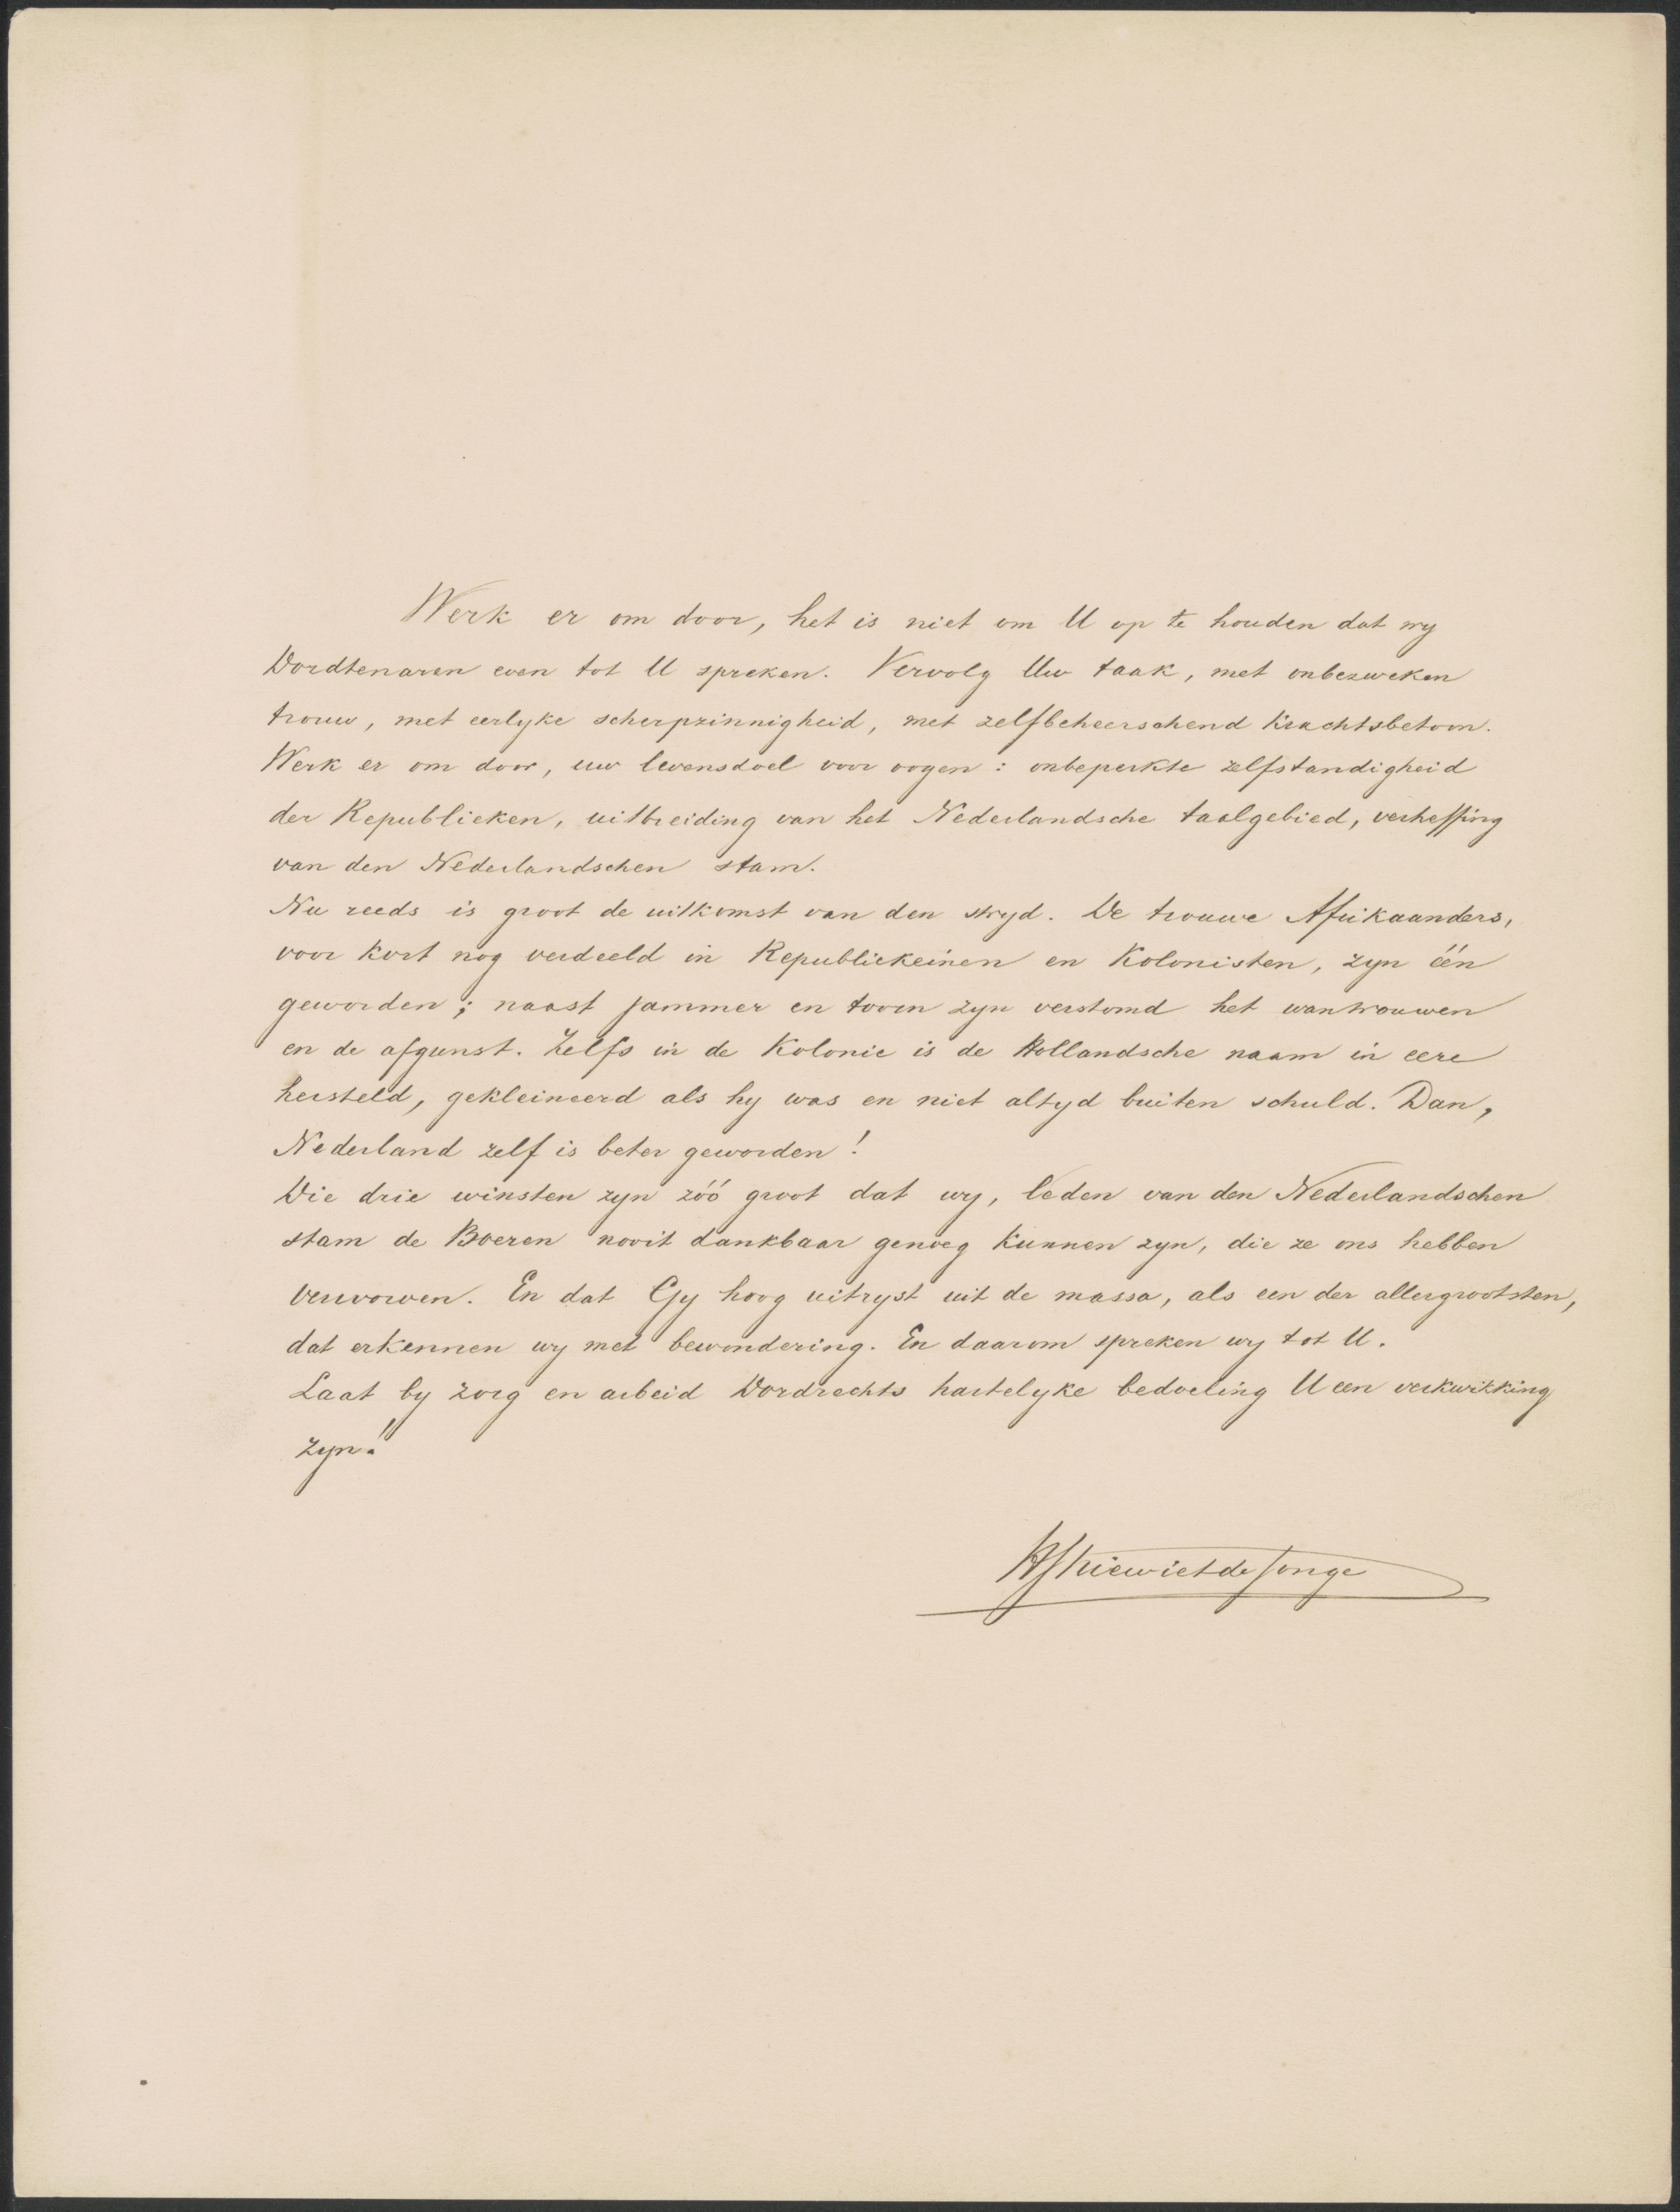 Werk er om door, het is niet om U op te houden dat wy
Dordtenaren even tot U spreken. Vervolg Uw taak, met onbezweken
trouw, met eerlyke scherpzinnigheid, met zelfbeheerschend krachtsbetoon.
Werk er om door, uw levensdoel voor oogen: onbeperkte zelfstandigheid
der Republieken, uitbreiding van het Nederlandsche taalgebied, verheffing
van den Nederlandschen stam.
Nu reeds is groot de uitkomst van den stryd. De trouwe Afrikaanders,
voor kort nog verdeeld in Republiekeinen en Kolonisten, zyn één
geworden; naast jammer en toorn zyn verstomd het wantrouwen
en de afgunst. Zelfs in de Kolonie is de Hollandsche naam in eere
hersteld, gekleineerd als hy was en niet altyd buiten schuld. Dan,
Nederland zelf is beter geworden!
Die drie winsten zyn zóó groot dat wy, leden van den Nederlandschen
stam de Boeren nooit dankbaar genoeg kunnen zyn, die ze ons hebben
verworven. En dat Gy hoog uitryst uit de massa, als een der allergrootsten,
dat erkennen wy met bewondering. En daarom spreken wy tot U.
Laat by zorg en arbeid Dordrechts hartelyke bedoeling U een verkwikking
zyn!
HJ Kiewiet de Jonge